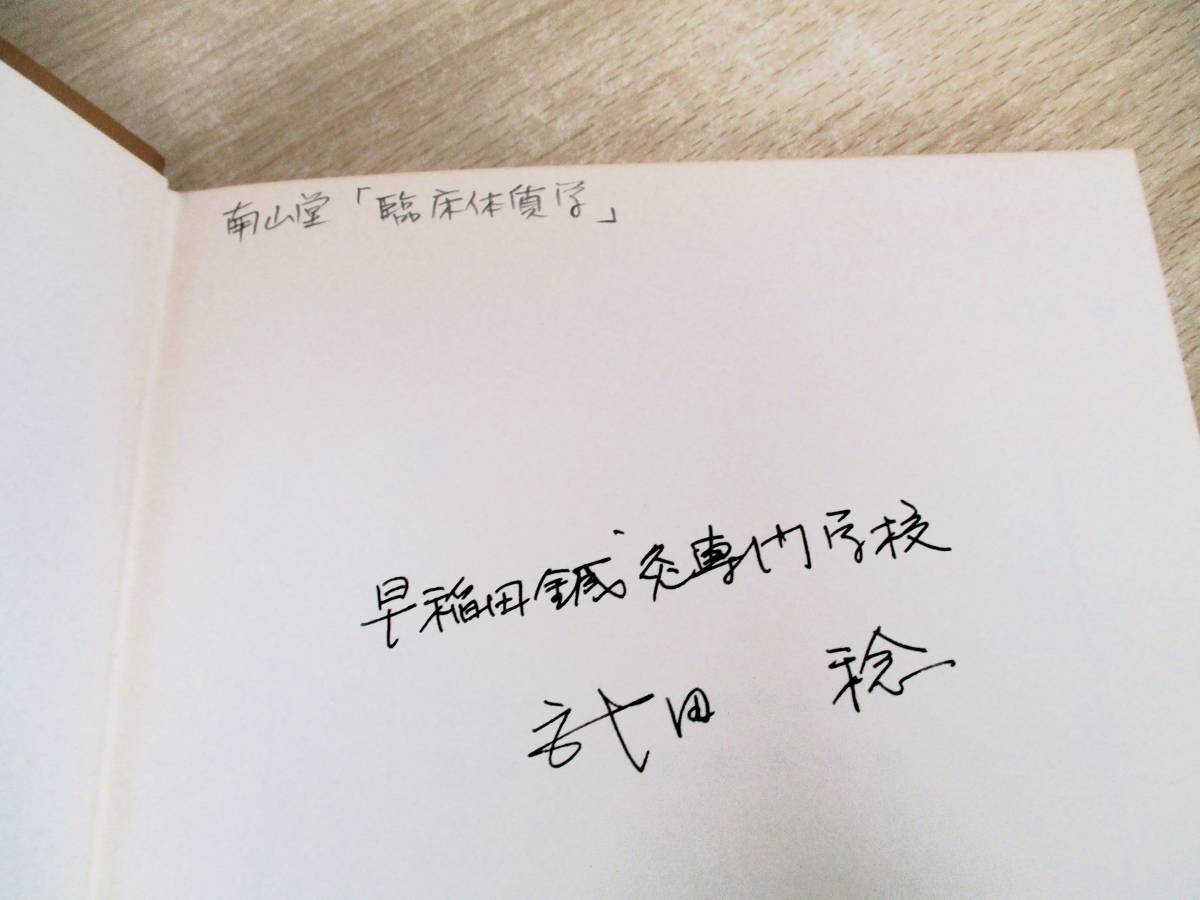 南山堂「臨床体質学」
早稲田鍼灸専門学校
武田 稔